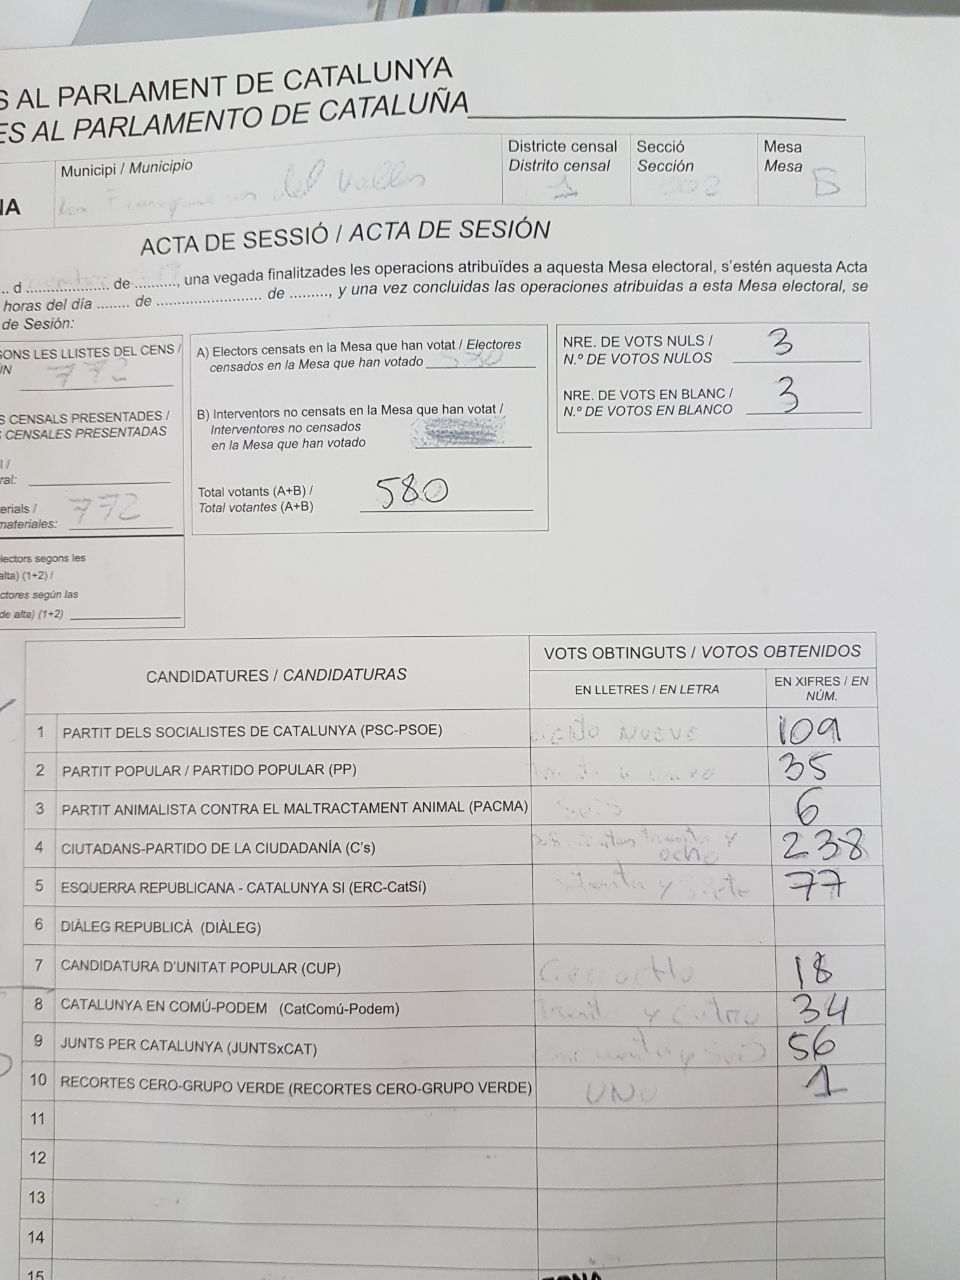 S AL PARLAMENT DE CATALUNYA
ES AL PARLAMENTO DE CATALUÑA
NA
Municipi / Municipio
del Valles
Districte censal
Distrito censal
1
Secció
Sección
002
Mesa
Mesa
B
ACTA DE SESSIÓ / ACTA DE SESIÓN
.. d ..................... de .........., una vegada finalitzades les operacions atribuïdes a aquesta Mesa electoral, s'estén aquesta Acta
horas del día ........ de .......................... de ........., y una vez concluidas las operaciones atribuidas a esta Mesa electoral, se
de Sesión:
SONS LES LLISTES DEL CENS /
ÚN
772
S CENSALS PRESENTADES /
S CENSALES PRESENTADAS
l /
ral:
erials /
materiales:
772
lectors segons les
alta) (1+2) /
ctores según las
de alta) (1+2)
A) Electors censats en la Mesa que han votat / Electores
censados en la Mesa que han votado 580
B) Interventors no censats en la Mesa que han votat /
Interventores no censados
en la Mesa que han votado
Total votants (A+B) /
Total votantes (A+B)
580
NRE. DE VOTS NULS /
N.º DE VOTOS NULOS
3
NRE. DE VOTS EN BLANC /
N.º DE VOTOS EN BLANCO
3
CANDIDATURES / CANDIDATURAS
VOTS OBTINGUTS / VOTOS OBTENIDOS
EN LLETRES / EN LETRA
EN XIFRES / EN
NÚM.
1 PARTIT DELS SOCIALISTES DE CATALUNYA (PSC-PSOE) nueve 109
2 PARTIT POPULAR / PARTIDO POPULAR (PP) 35
3 PARTIT ANIMALISTA CONTRA EL MALTRACTAMENT ANIMAL (PACMA) Seis 6
4 CIUTADANS-PARTIDO DE LA CIUDADANÍA (C's) treinta y ocho 238
5 ESQUERRA REPUBLICANA - CATALUNYA SI (ERC-CatSí) setenta y siete 77
6 DIÀLEG REPUBLICÀ (DIÀLEG)
7 CANDIDATURA D'UNITAT POPULAR (CUP) 18
8 CATALUNYA EN COMÚ-PODEM (CatComú-Podem) Treinta y cuatro 34
9 JUNTS PER CATALUNYA (JUNTSxCAT) 56
10 RECORTES CERO-GRUPO VERDE (RECORTES CERO-GRUPO VERDE) UNO 1
11
12
13
14
15